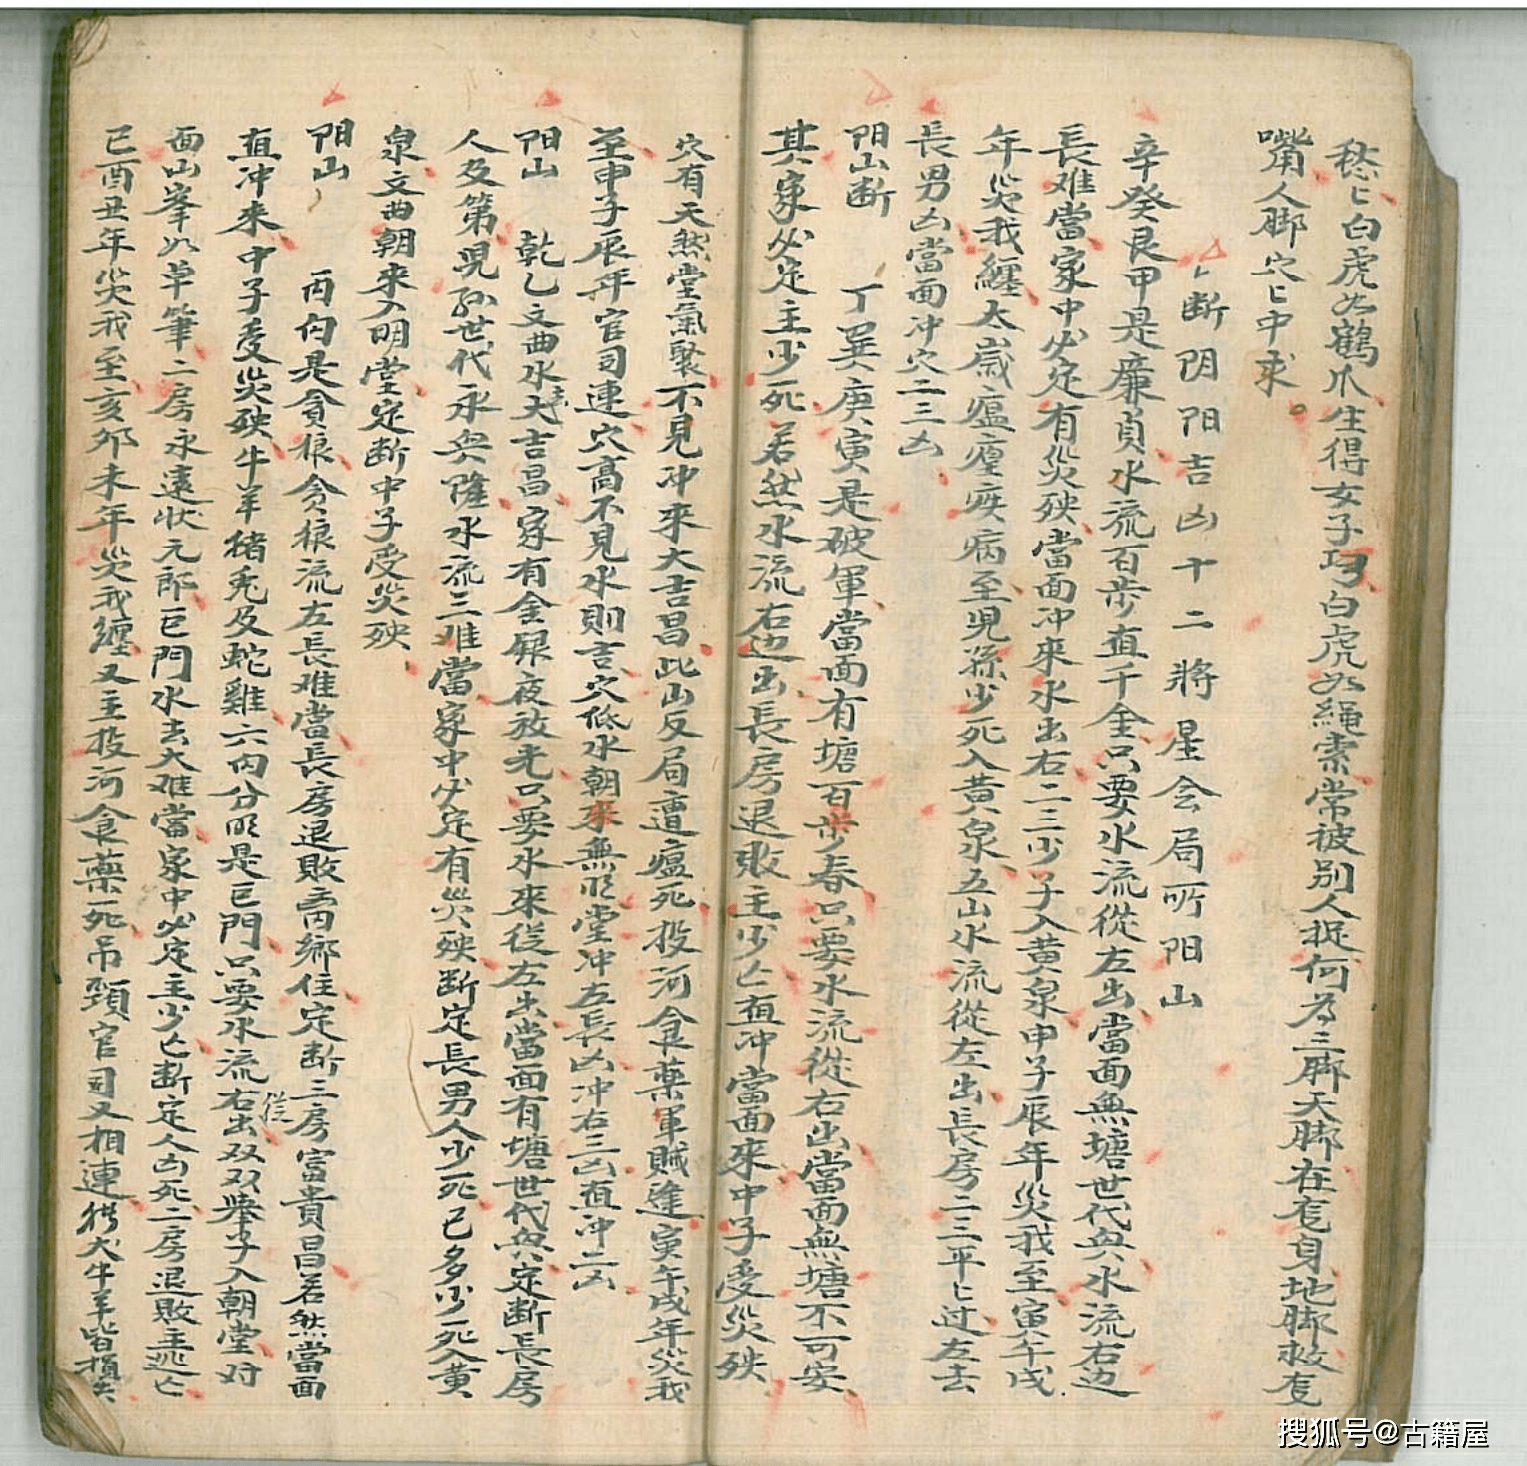 愁〻白虎如鶴爪生得女子巧白虎如繩索常被別人捉何為三脚天脚在㐱身地脚救㐱
嘴角人脚穴〻中求
断阴阳吉凶十二將星会局所阳山
辛癸艮甲是廉貞水流百步直千金只要水流從左出當面無塘世代興水流右边
長难當家中必定有災殃當面冲來水出右二三少子入黄泉申子辰年災我至寅午戌
年災我纏太歲瘟㾮疾病至児孫少死入黄泉五山水流從左出長房二三平〻过左去
長男凶當面冲穴二三凶
阳山断 丁巽庚寅是破軍當面有塘百步春只要水流從右出當面無塘不可安
其家必定主少死若然水流右边出長房退敗主少亡直冲當面來中子受災殃
穴有天然堂氣聚不見冲來大吉昌此山反局遭瘟死投河食藥軍賊逢寅午戌年災我
至申子辰年官司連穴高不見水則吉穴低水朝來無明堂冲左長凶冲右三凶直冲二凶
阳山 乾乙文曲水大吉昌家有金銀夜放光只要水來從左出當面有塘世代興定断長房
人及第児孫世代永興隆水流三难當家中必定有災殃断定長男人少死已多少死入黄
泉文曲朝來入明堂定断中子受災殃
阳山 丙向是貪狼貪狼流左長难當長房退敗离鄉住定断三房富貴昌若然當面
直冲來中子受災殃牛羊猪兎及蛇雞六丙分明是巨門只要水流右出双双舉子入朝堂对
從
面山峯如草筆二房永遠状元郎巨門水去大难當家中必定主少亡断定人凶死二房退敗主逃亡
巳酉丑年災我至亥卯未年災我纏又主投河食藥死吊頚官司又相連猪犬牛羊皆損失
搜狐号@古籍屋